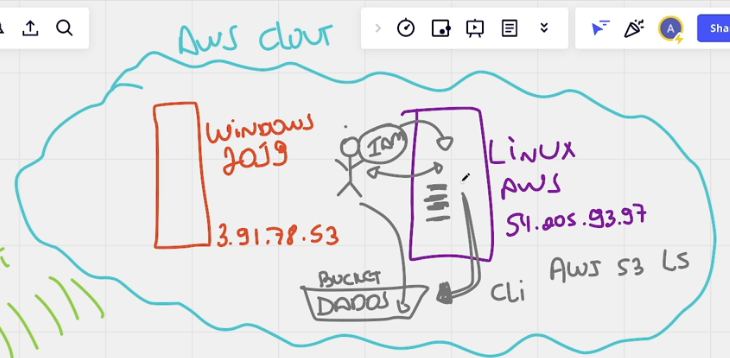 A
Sha
AWS Clout
WINDOWS
2019
3.91.78.53
IAM
LINUX
AWS
54.205.93.97
BUCKET
DADOS
CLi
AWS S3 LS